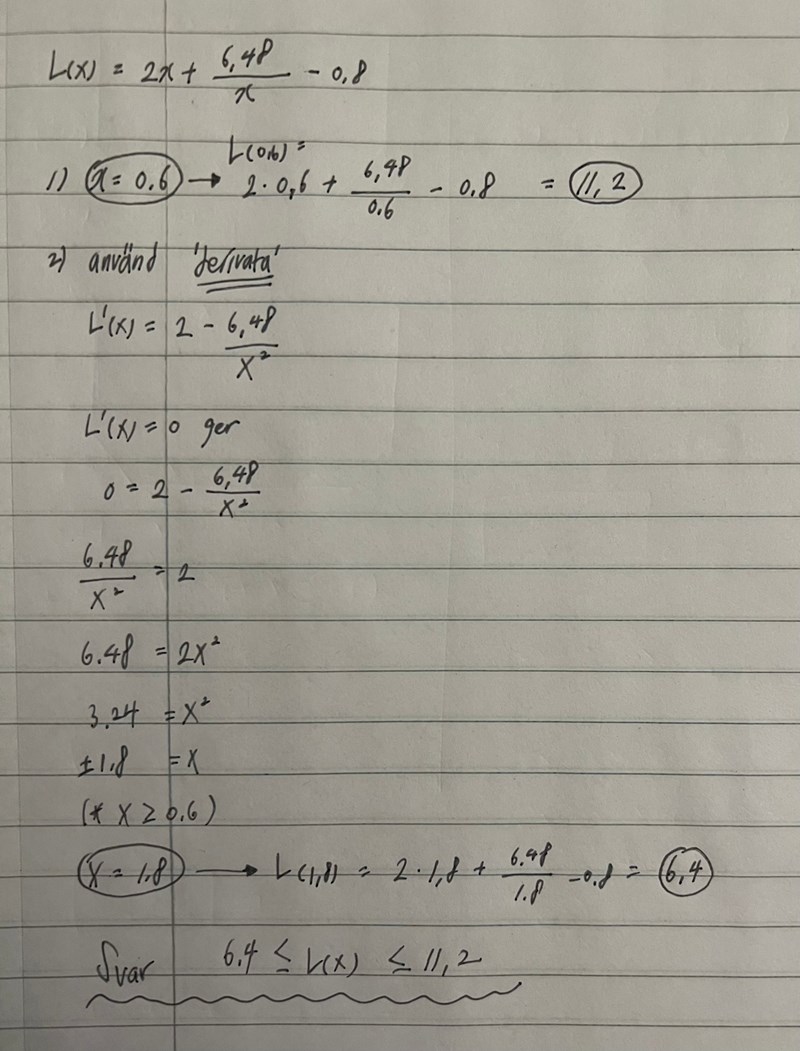 L(x) = 2x + 6,48/x - 0,8
L(0,6) =
1) x = 0.6 → 2·0,6 + 6,48/0.6 - 0.8 = 11,2
2) använd 'derivata'
L'(x) = 2 - 6,48/x²
L'(x) = 0 ger
0 = 2 - 6,48/x²
6.48/x² = 2
6.48 = 2x²
3.24 = x²
±1.8 = x
(* x ≥ 0.6)
x = 1.8 → L(1,8) = 2·1,8 + 6.48/1.8 - 0.8 = 6,4
Svar 6.4 ≤ L(x) ≤ 11,2